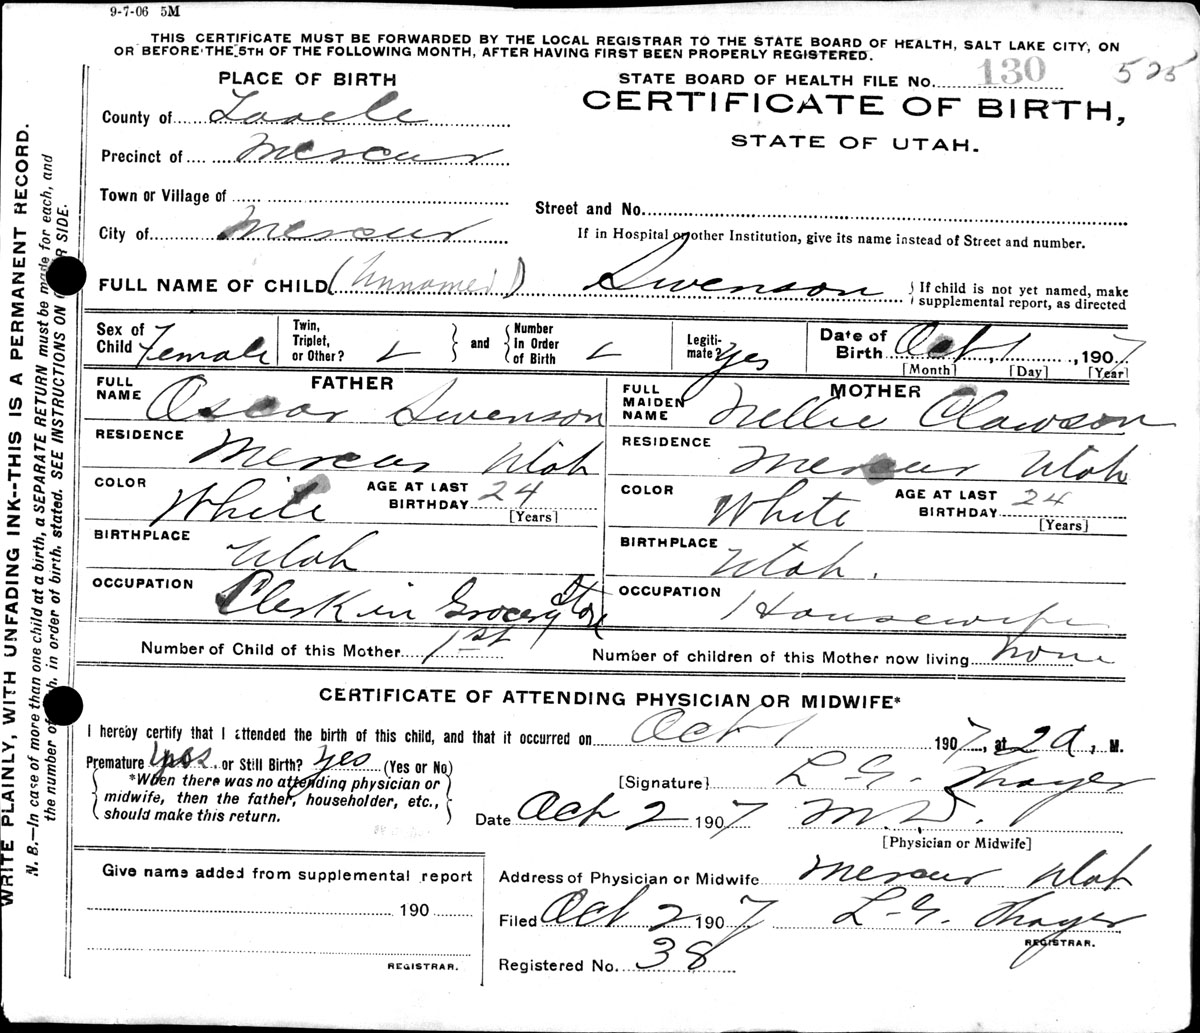 9-7-06 5M
THIS CERTIFICATE MUST BE FORWARDED BY THE LOCAL REGISTRAR TO THE STATE BOARD OF HEALTH, SALT LAKE CITY, ON
OR BEFORE THE 5TH OF THE FOLLOWING MONTH, AFTER HAVING FIRST BEEN PROPERLY REGISTERED.
PLACE OF BIRTH
STATE BOARD OF HEALTH FILE No. 130 525
CERTIFICATE OF BIRTH,
STATE OF UTAH.
County of Tooele
Precinct of Mercur
Town or Village of
Street and No.
City of Mercur
If in Hospital or other Institution, give its name instead of Street and number.
FULL NAME OF CHILD (Unnamed) Swenson
} If child is not yet named, make
supplemental report, as directed
Sex of Child Female
Twin, Triplet, or Other?
and
Number In Order of Birth
Legiti-mate? Yes
Date of Birth Oct, 1, 1907
[Month] [Day] [Year]
FATHER
FULL NAME Oscar Swenson
RESIDENCE Mercur Utah
COLOR White
AGE AT LAST BIRTHDAY 24
[Years]
BIRTHPLACE Utah
OCCUPATION Clerk in Grocery Store
MOTHER
FULL MAIDEN NAME Nellie Clawson
RESIDENCE Mercur Utah
COLOR White
AGE AT LAST BIRTHDAY 24
[Years]
BIRTHPLACE Utah.
OCCUPATION Housewife
Number of Child of this Mother 1st
Number of children of this Mother now living none
CERTIFICATE OF ATTENDING PHYSICIAN OR MIDWIFE*
I hereby certify that I attended the birth of this child, and that it occurred on Oct 1 1907, at 2 a, M.
Premature yes or Still Birth? Yes (Yes or No)
*When there was no attending physician or
midwife, then the father, householder, etc.,
should make this return.
[Signature] L. G. Thayer
Date Oct 2 1907 M.D.
[Physician or Midwife]
Give name added from supplemental report
190
REGISTRAR.
Address of Physician or Midwife Mercur Utah
Filed Oct 2 1907 L. G. Thayer
REGISTRAR.
Registered No. 38
WRITE PLAINLY, WITH UNFADING INK--THIS IS A PERMANENT RECORD.
N. B.—In case of more than one child at a birth, a SEPARATE RETURN must be made for each, and
the number of in order of birth, stated. SEE INSTRUCTIONS ON SIDE.